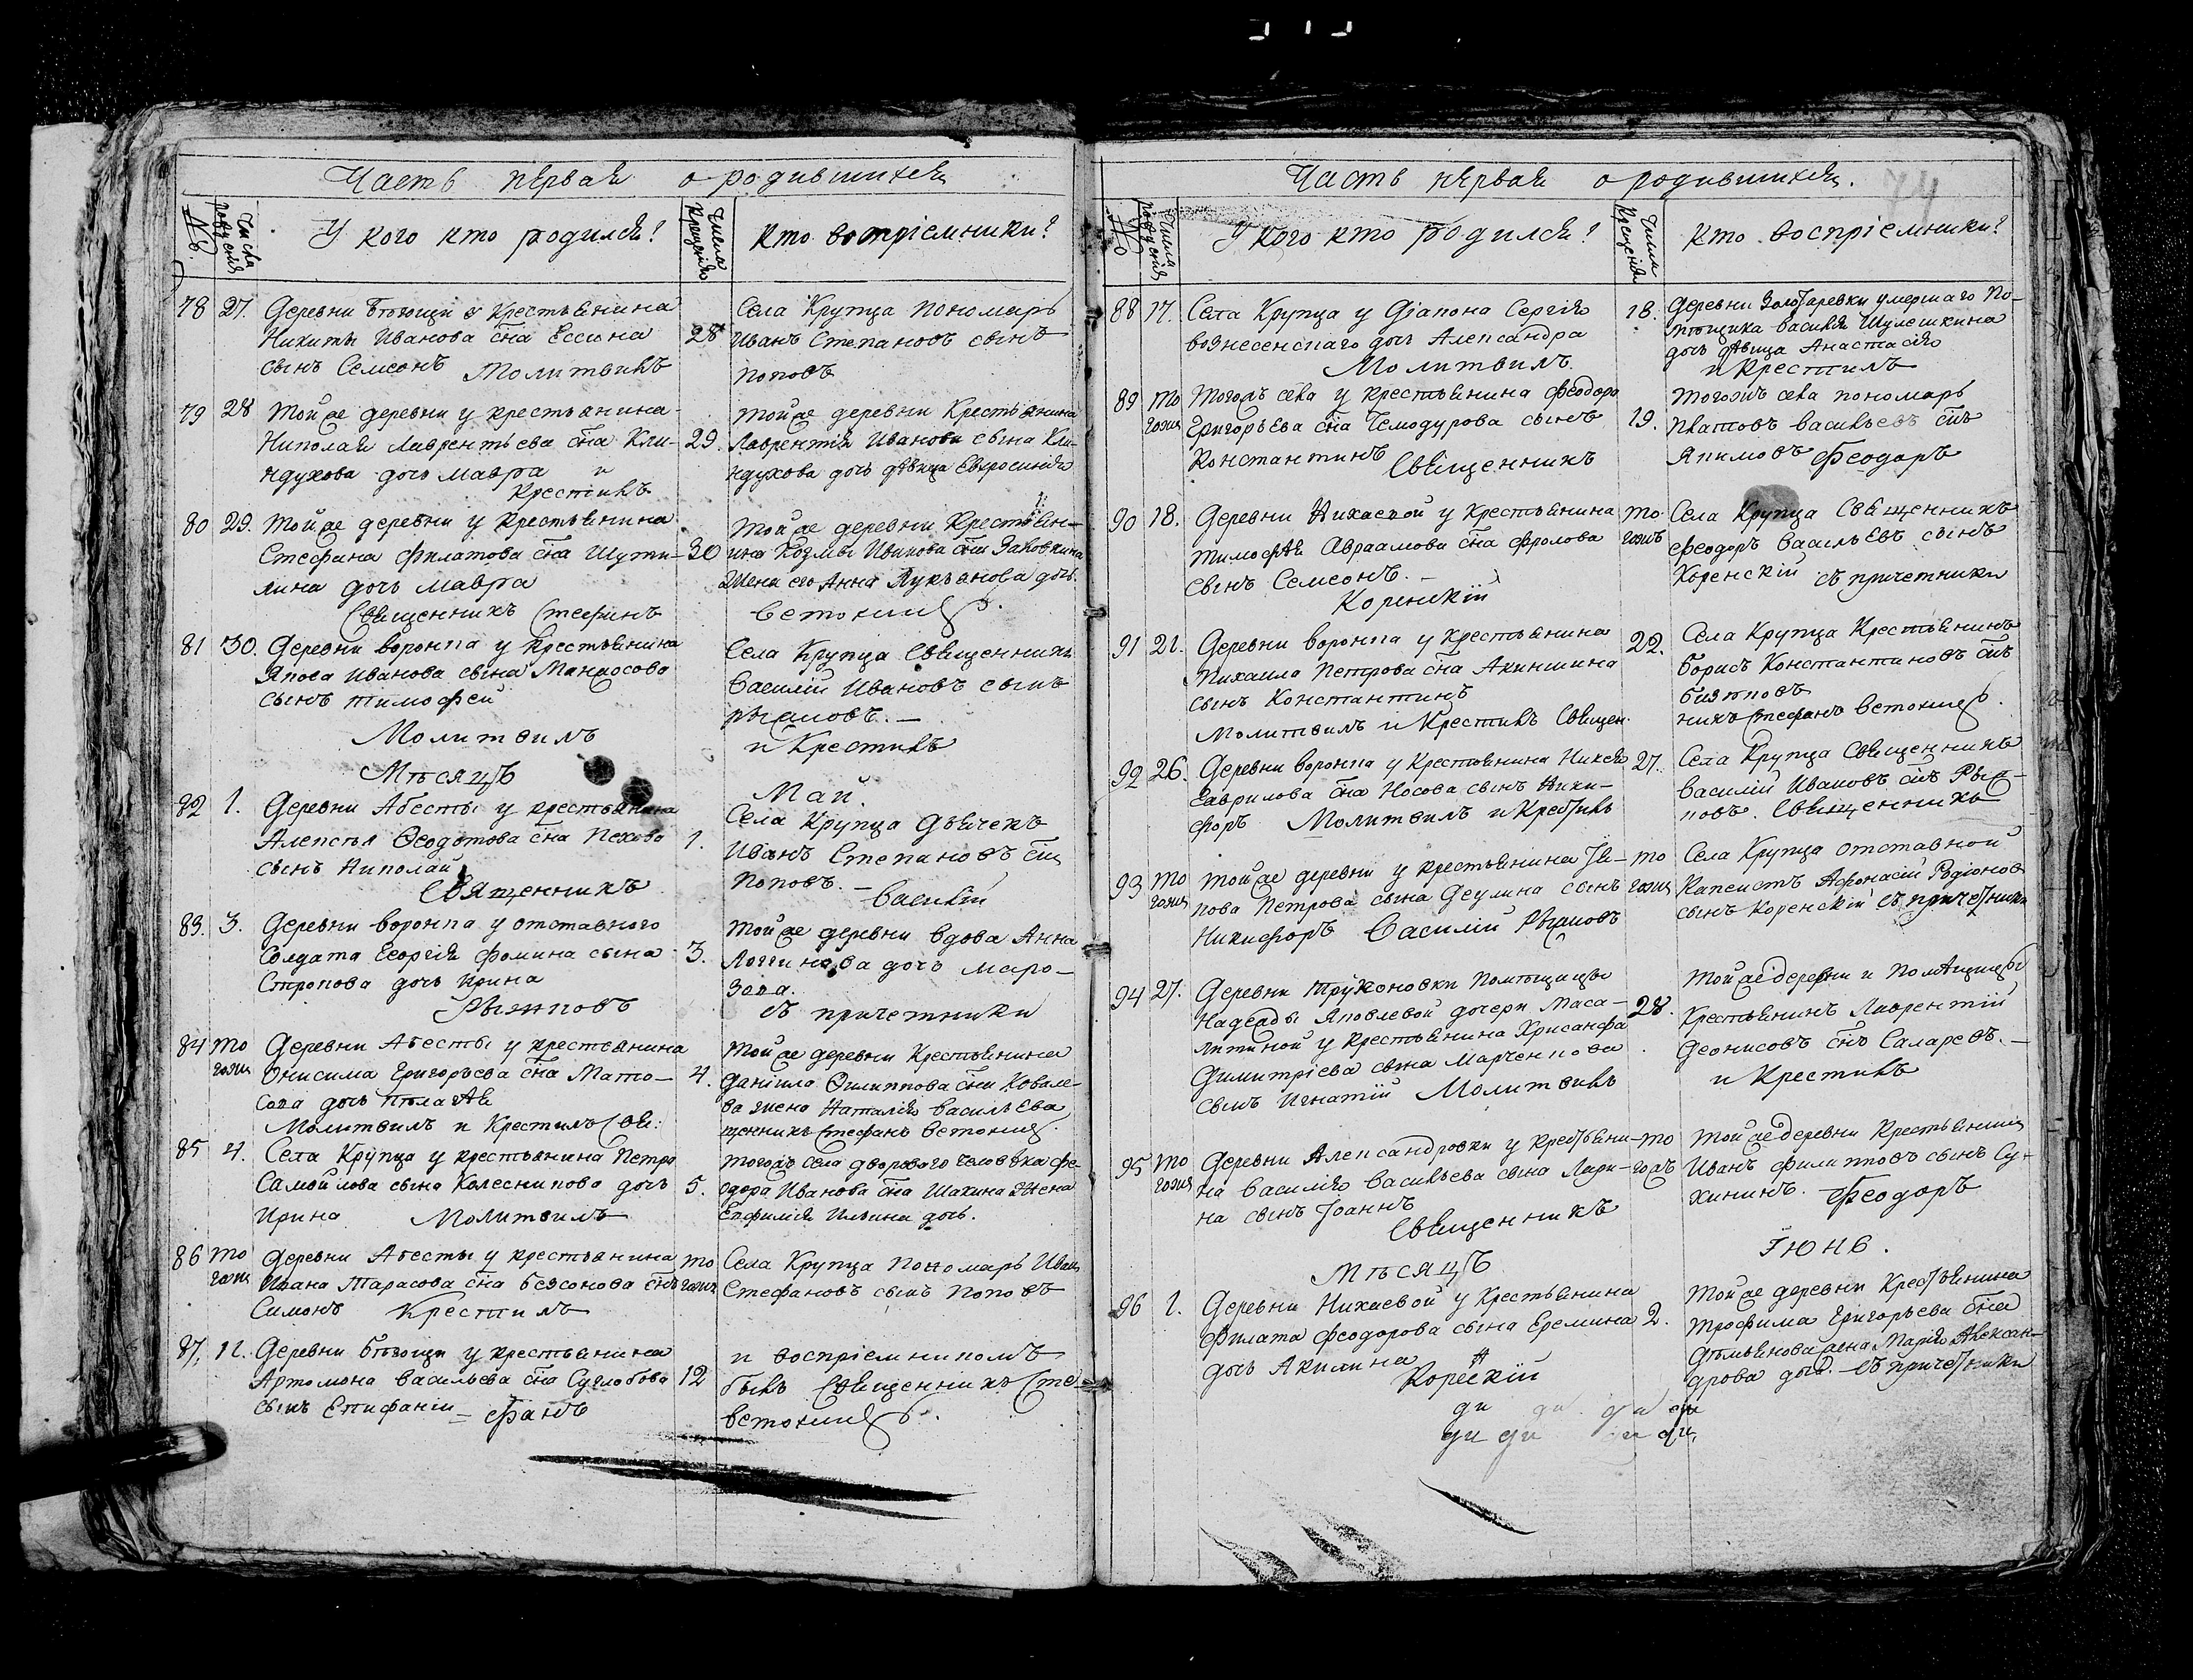 Часть первая о родившихся
№
Числа рождения
У кого кто родился?
Числа Крещенія
Кто воспріемники?
78 27. Деревни у Крестьянина
Никиты Иванова сна Ессина
сынъ Семеонъ Молитвилъ
28 Села Крупца пономарь
Иванъ Степановъ сынъ
поповъ
79 28 Тойже деревни у крестьянина
Николая Лаврентьева сна Кли-
ндухова дочь Мавра и
Крестилъ
29. Тойже деревни Крестьянина
Лаврентія Иванова сына Кли-
ндухова дочь дѣвица Евфросинія
80 29. Тойже деревни у крестьянина
Стефана Филатова сна Шути-
лина дочь Мавра
Священникъ Стефанъ
30 Тойже деревни Крестьян-
ина Козмы Иванова сна
Жена его Анна Лукьянова дочь.
Ветохинъ.
81 30. Деревни воронка у Крестьянина
Якова Иванова сына
сынъ тимофей
Молитвилъ
Села Крупца Священникъ
Василій Ивановъ сынъ
рыжковъ. —
и Крестилъ
Мѣсяцъ Май.
82 1. Деревни Абесты у крестьянина
Алексѣя Ѳеодотова сна
сынъ Николай
Священникъ
1. Села Крупца Дьячекъ
Иванъ Степановъ сын
поповъ. —
Василій
83. 3. Деревни воронка у отставного
Солдата Георгія Фомина сына
Строкова дочь Ирина
Рыжковъ
3. Тойже деревни вдова Анна
Логгинова дочь Моро-
зова.
съ причетники
84 тогожъ Деревни Абесты у крестьянина
Онисима Григорьева сна Мато-
сова дочь Пѣлагѣя
Молитвилъ и Крестилъ Свя:
4. Тойже деревни Крестьянина
Даніила Филиппова сна Ковале-
ва жена Наталія Васильева
щенникъ Стефанъ Ветохинъ.
85 4. Села Крупца у крестьянина Петра
Самойлова сына Колесникова дочь
Ирина Молитвилъ
5. Тогожъ села дворового человѣка Фе-
одора Иванова сна Шахина Жена
Евфимія Ильина дочь.
86 тогожъ Деревни Абесты у крестьянина
Ивана Тарасова сна Безсонова снъ
Симонъ Крестилъ
тогожъ Села Крупца Пономарь Иван
Стефановъ сынъ Поповъ
87. 11. Деревни у крестьянина
Артомона Васильева сна Суглобова
сынъ Епифаній = фанъ
12 и воспріемникомъ
былъ Священникъ Сте-
Ветохинъ.
Часть первая о родившихся.
74
№
Числа рождения
У кого кто родился?
Числа Крещенія
Кто воспріемники?
88 17. Села Крупца у Діакона Сергія
вознесенскаго дочь Александра
Молитвилъ
18. Деревни Золотаревки умершаго По-
мѣщика Василія Шулешкина
дочь дѣвица Анастасія
и Крестилъ
89 тогожъ Тогожъ села у крестьянина Феодора
Григорьева сна Чемодурова сынъ
Константинъ Священникъ
19. Тогожъ села пономарь
Платовъ Васильевъ снъ
Якимовъ Феодоръ
90 18. Деревни Нихаевой у крестьянина
Тимофѣя Авраамова сна Фролова
сынъ Семеонъ. —
Коренскій
тогожъ Села Крупца Священникъ
Феодоръ Васильевъ сынъ
Коренскій съ причетники
91 21. Деревни воронка у крестьянина
Михаила Петрова сна Акиншина
сынъ Константинъ
Молитвилъ и Крестилъ Священ.
22. Села Крупца Крестьянинъ
Борисъ Константиновъ снъ
никъ Стефанъ Ветохинъ.
92 26. Деревни воронка у Крестьянина
Гаврилова сна Носова сынъ Ники-
форъ Молитвилъ и Крестилъ
27. Села Крупца Священникъ
Василій Ивановъ снъ Рыж-
ковъ. Священникъ
93 тогожъ Тойже деревни у крестьянина Іа-
кова Петрова сына Деулина сынъ
Никифоръ Василій Рыжковъ
тогожъ Села Крупца отставной
Капеистъ Афонасій Родіоновъ
сынъ Коренскій съ причетники
94 27. Деревни Трухоновки Помѣщицы
Надежды Яковлевой дочери Маса-
литиной у крестьянина Хрисанфа
Димитріева сына Марченкова
сынъ Игнатій Молитвилъ
28. Тойже деревни и Помѣщицы
Крестьянинъ Лаврентій
Деонисовъ снъ Саларевъ. —
и Крестилъ
95 тогожъ Деревни Александровки у крестьяни-
на Василія Васильева сына Лари-
на сынъ Іоаннъ
Священникъ
тогожъ Тойже деревни Крестьянинъ
Иванъ Филипповъ сынъ Су-
хининъ. Феодоръ
Мѣсяцъ Іюнь.
96 1. Деревни Нихаевой у Крестьянина
Филата Феодорова сына Еремина
дочь Акилина
Коренскій
2. Тойже деревни Крестьянина
Трофима Григорьева сна
Дѣмьянова жена Марія Алексан-
дрова дочь. — съ причетники